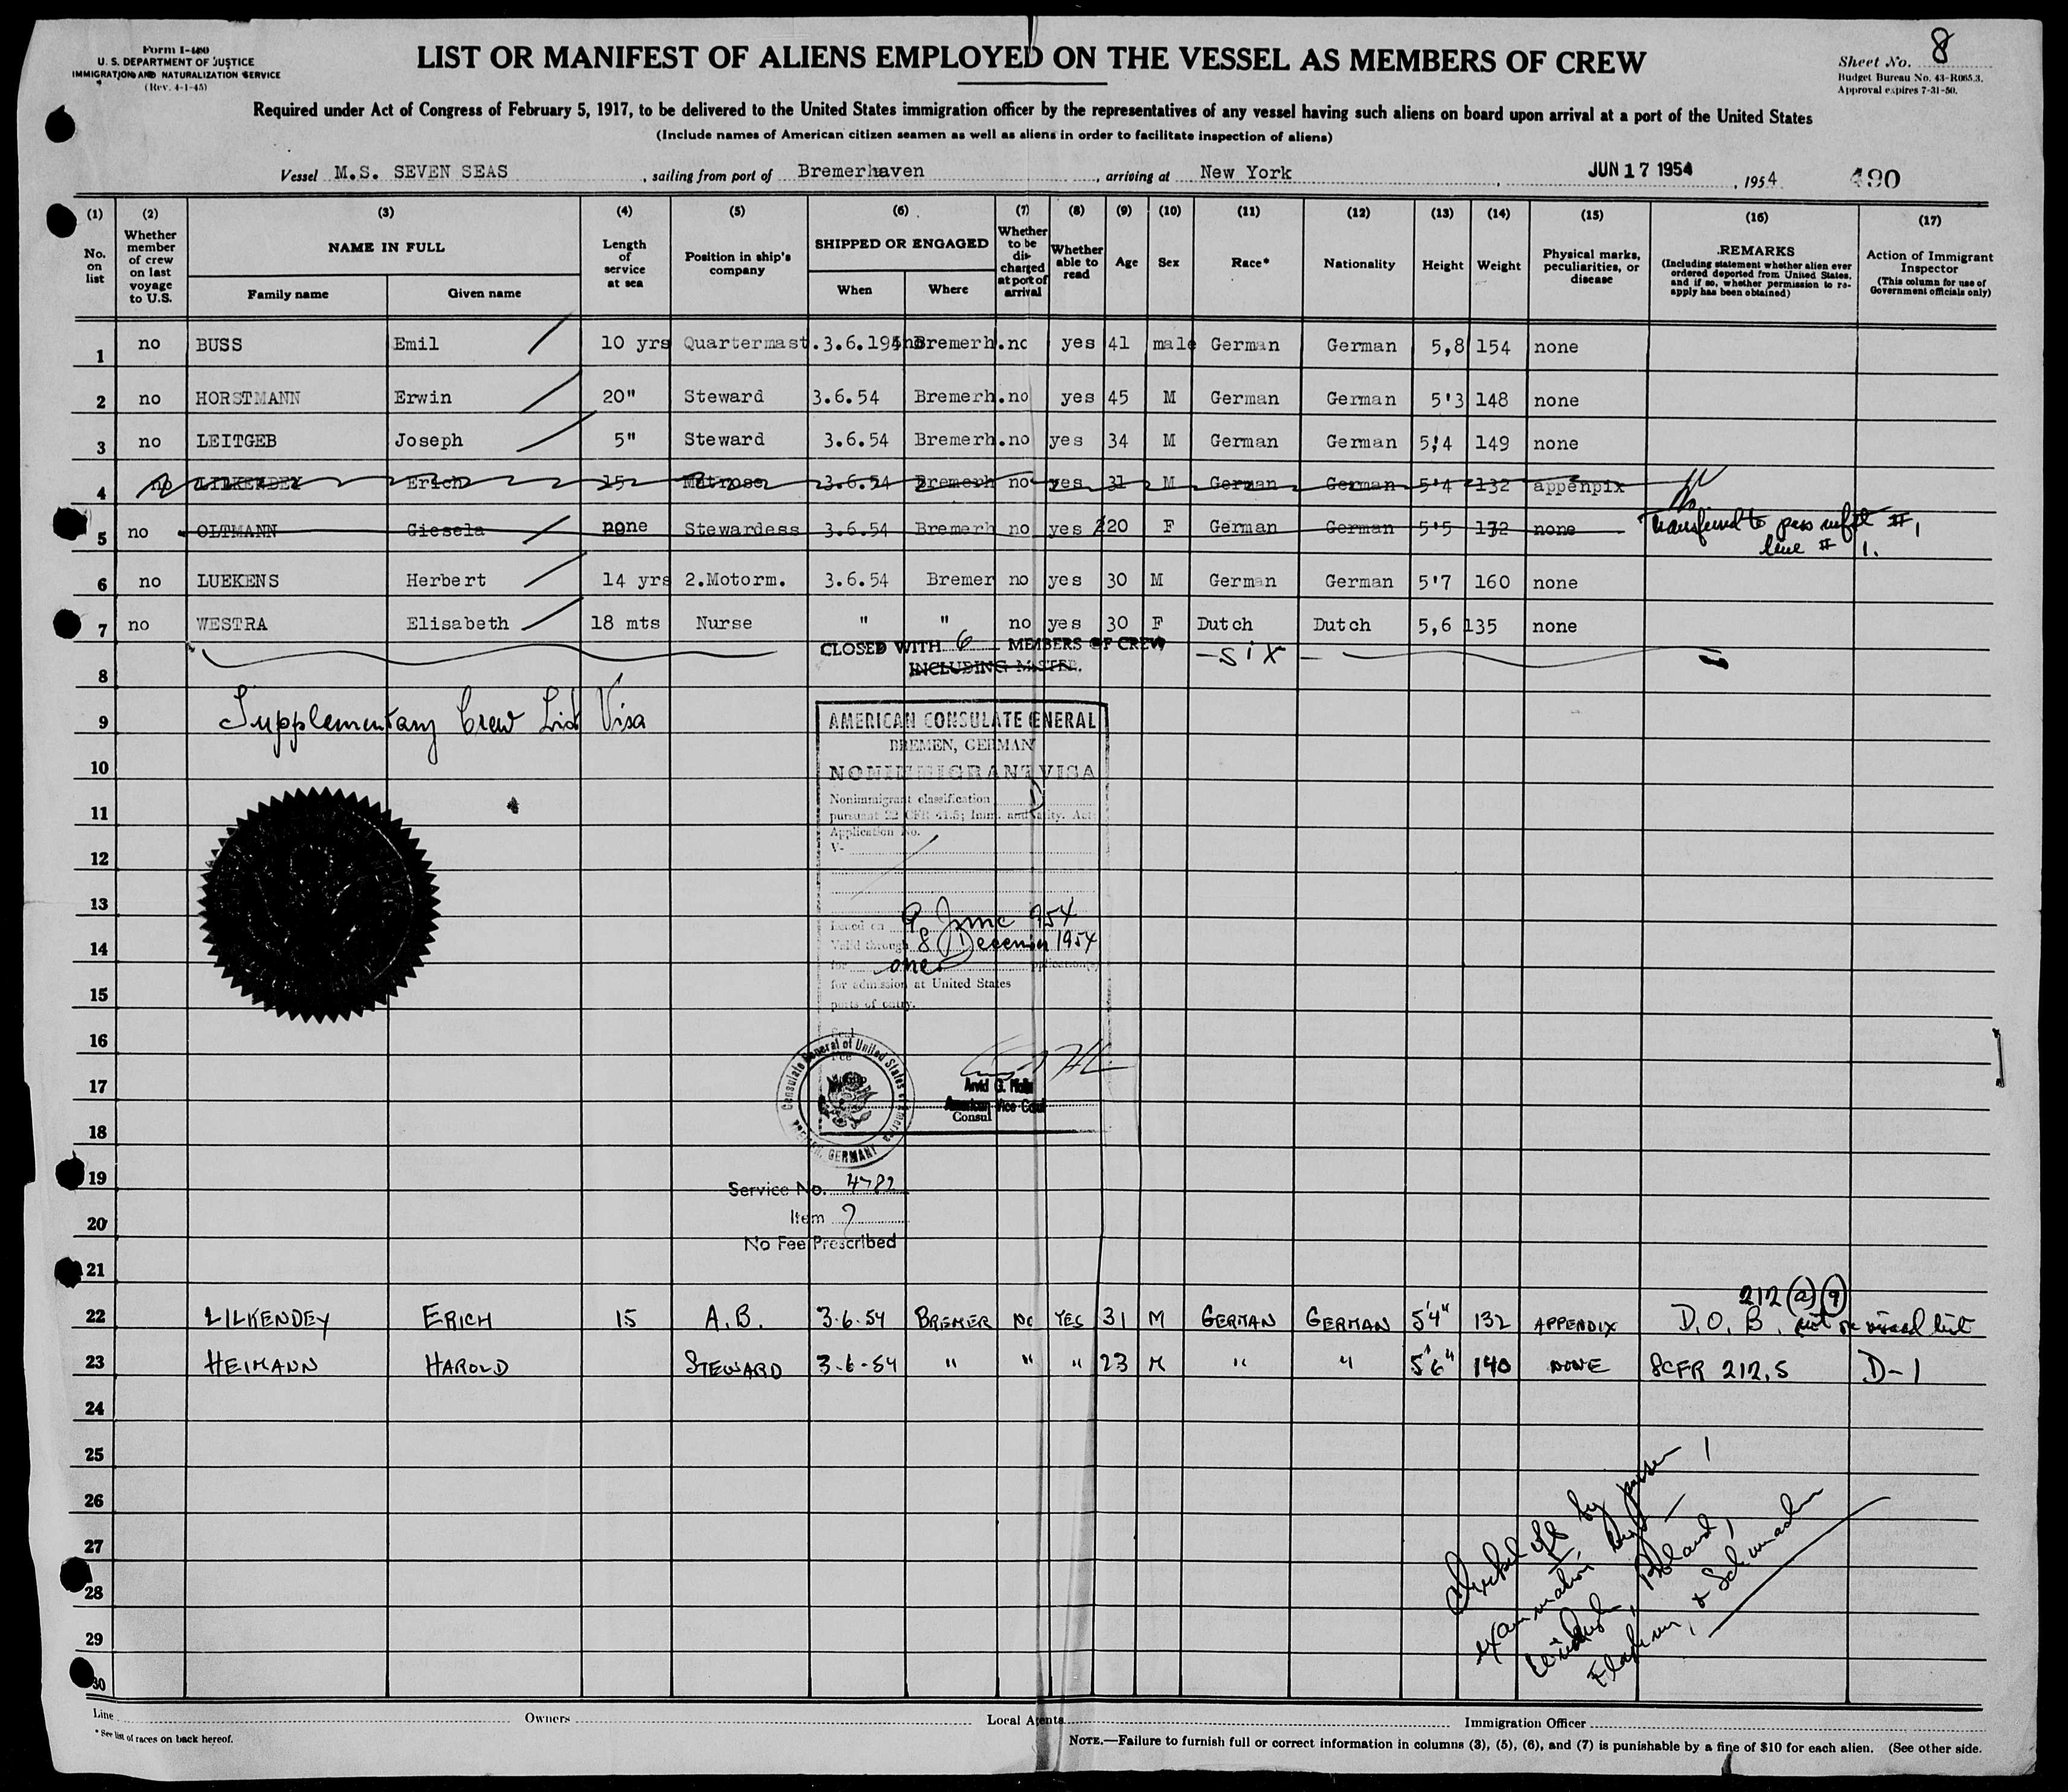 Form I-480
U. S. DEPARTMENT OF JUSTICE
IMMIGRATION AND NATURALIZATION SERVICE
(Rev. 4-1-45)
LIST OR MANIFEST OF ALIENS EMPLOYED ON THE VESSEL AS MEMBERS OF CREW
Sheet No. 8
Budget Bureau No. 43-R065.3.
Approval expires 7-31-50.
Required under Act of Congress of February 5, 1917, to be delivered to the United States immigration officer by the representatives of any vessel having such aliens on board upon arrival at a port of the United States
(Include names of American citizen seamen as well as aliens in order to facilitate inspection of aliens)
Vessel M.S. SEVEN SEAS, sailing from port of Bremerhaven, arriving at New York, JUN 17 1954, 1954 490
(1) (2) (3) (4) (5) (6) (7) (8) (9) (10) (11) (12) (13) (14) (15) (16) (17)
No. on list
Whether member of crew on last voyage to U.S.
NAME IN FULL
Family name Given name
Length of service at sea
Position in ship's company
SHIPPED OR ENGAGED
When Where
Whether to be discharged at port of arrival
Whether able to read
Age
Sex
Race*
Nationality
Height
Weight
Physical marks, peculiarities, or disease
REMARKS
(Including statement whether alien ever ordered deported from United States, and if so, whether permission to reapply has been obtained)
Action of Immigrant Inspector
(This column for use of Government officials only)
1 no BUSS Emil 10 yrs Quartermast. 3.6.195 Bremerh. no yes 41 male German German 5,8 154 none
2 no HORSTMANN Erwin 20" Steward 3.6.54 Bremerh. no yes 45 M German German 5'3 148 none
3 no LEITGEB Joseph 5" Steward 3.6.54 Bremerh. no yes 34 M German German 5'4 149 none
4 no LILKENDEY Erich 15 Matrose 3.6.54 Bremerh no yes 31 M German German 5'4 132 appenpix
5 no OLTMANN Giesela none Stewardess 3.6.54 Bremerh no yes 20 F German German 5'5 132 none Transferred to pass mfst # 1
line # 1.
6 no LUEKENS Herbert 14 yrs 2.Motorm. 3.6.54 Bremer no yes 30 M German German 5'7 160 none
7 no WESTRA Elisabeth 18 mts Nurse " " no yes 30 F Dutch Dutch 5,6 135 none
CLOSED WITH 6 MEMBERS OF CREW - SIX -
INCLUDING MASTER.
8
9 Supplementary Crew List Visa
AMERICAN CONSULATE GENERAL
BREMEN, GERMANY
NONIMMIGRANT VISA
10
Nonimmigrant classification D
11
pursuant 22 CFR 41.5; Imm. and Nality. Act
Application No.
V-
12
13
Issued on 9 June 1954
14
Valid through 8 December 1954
for one application(s)
for admission at United States
15
ports of entry.
16
Seal
Fee
Consulate General of United States of America
BREMEN, GERMANY
17
American Vice Consul
Consul
18
19
Service No. 4782
20
Item 7
No Fee Prescribed
21
212 (a) (9)
22 LILKENDEY ERICH 15 A.B. 3-6-54 BREMER NO YES 31 M GERMAN GERMAN 5'4" 132 APPENDIX D.O.B. not on visaed list
23 HEIMANN HAROLD STEWARD 3-6-54 " " " 23 M " " 5'6" 140 NONE 8CFR 212.5 D-1
24
25
26
27
28
29
30
Checked off by purser
examination
Roland,
& Schumacher
Line Owners Local Agents Immigration Officer
* See list of races on back hereof.
NOTE.—Failure to furnish full or correct information in columns (3), (5), (6), and (7) is punishable by a fine of $10 for each alien. (See other side.